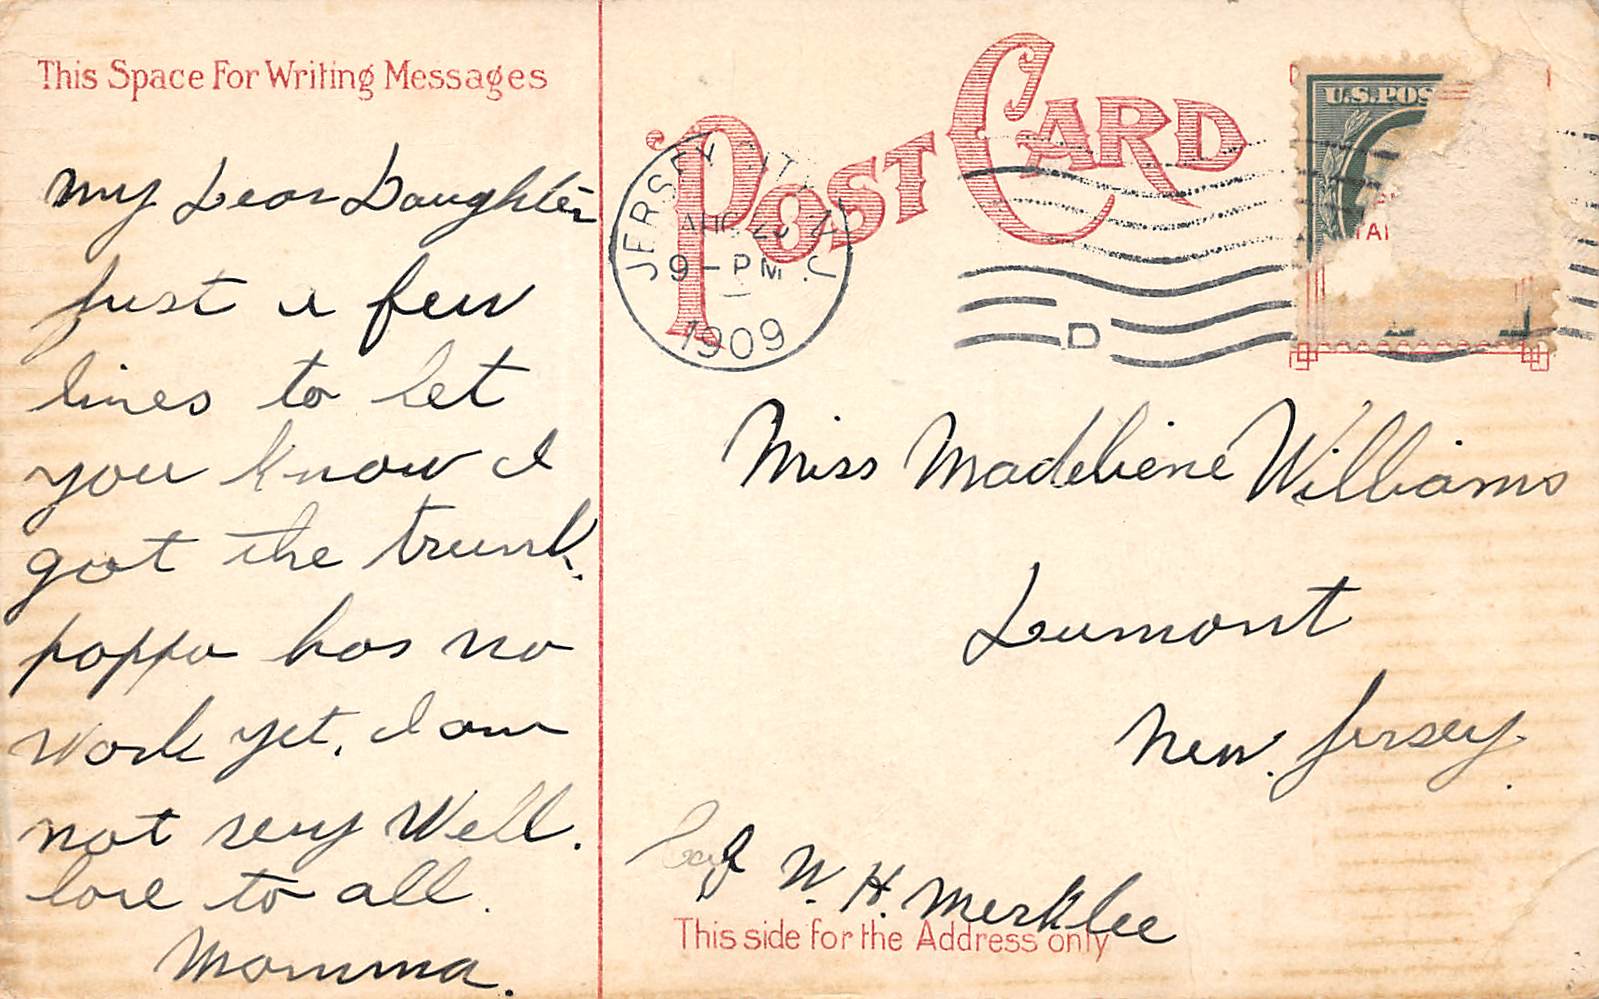 This Space For Writing Messages
My Dear Daughter
Just a few
lines to let
you know I
got the trunk.
poppa has no
work yet. I am
not very Well.
love to all.
Momma.
POST CARD
JERSEY CITY N.J.
AUG
9-PM
1909
D
U.S.POS
Miss Madeliene Williams
Lumont
New. Jersey.
W. H. Merklee
This side for the Address only